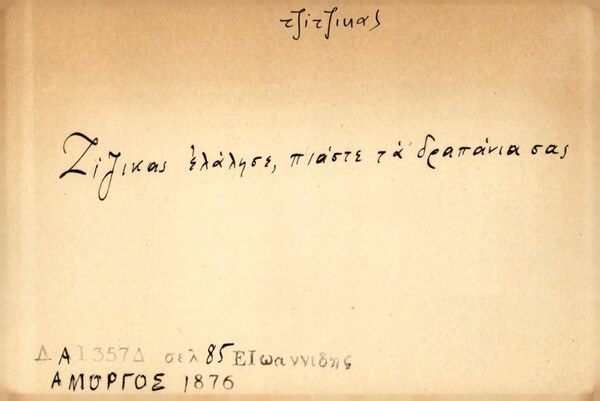 τζίτζικας
Ζίζικας ἐλάλησε, πιάστε τὰ δραπάνια σας
Λ Α 1357Δ σελ 85 ΕΙωαννιδης
ΑΜΟΡΓΟΣ 1876